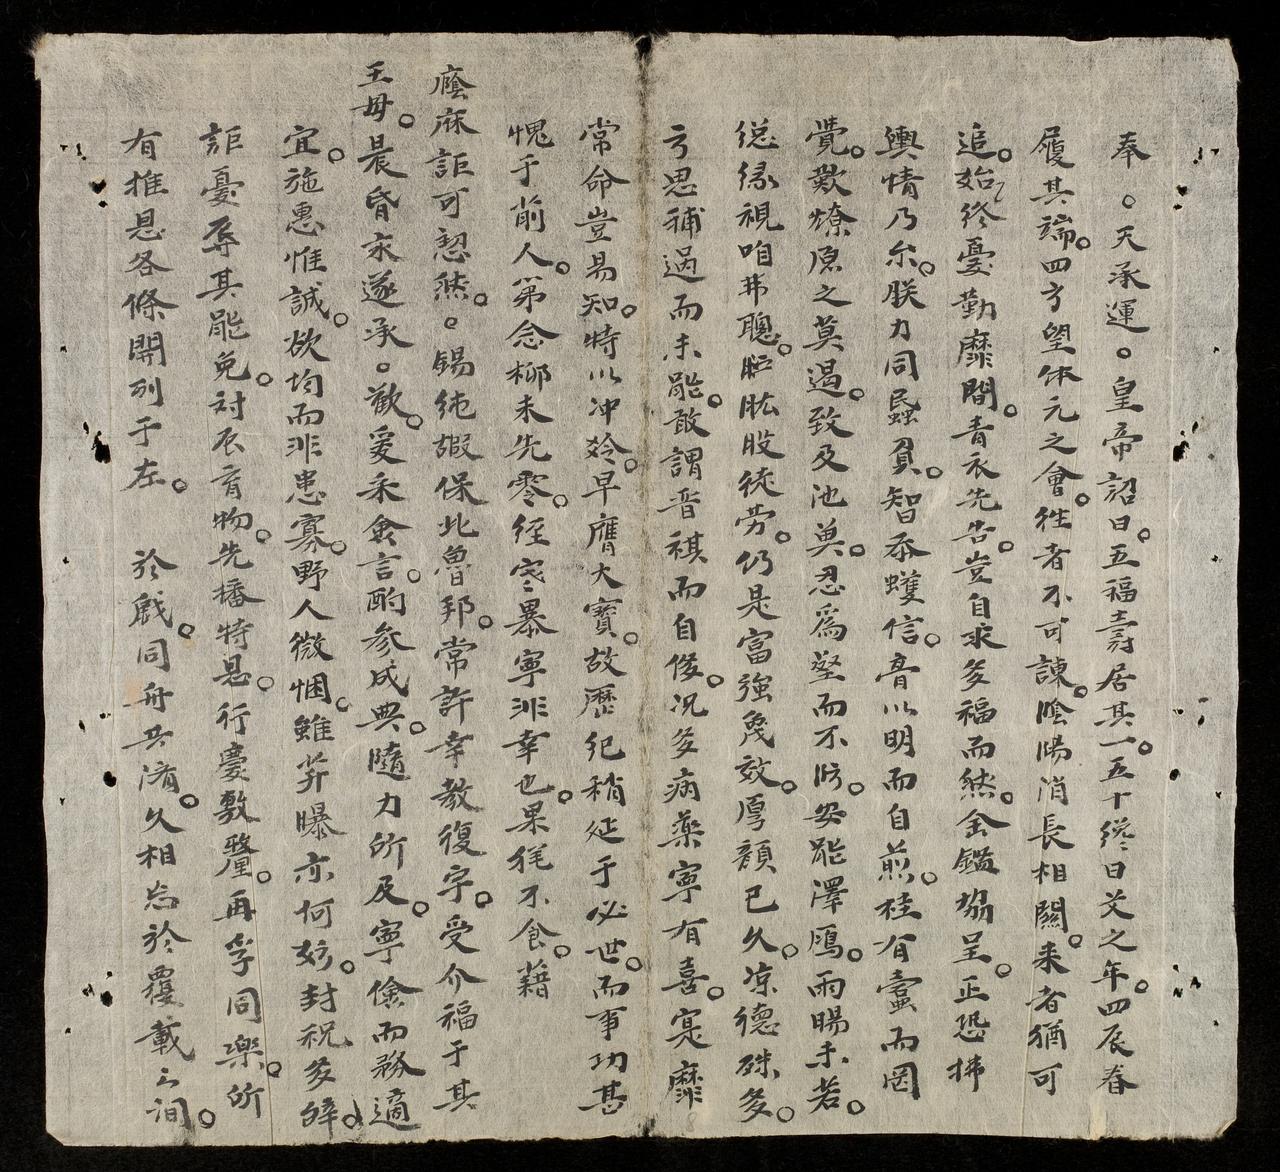 奉。天承運。皇帝詔曰。五福壽居其一。五十終曰艾之年。四辰春
履其端。四方望体元之會。徃者不可諫。陰陽消長相關。来者猶可
追。始終憂勤靡間。青衣先告。豈自求多福而然。金鑑協呈。正恐拂
輿情乃尓。朕力同蟲負。智忝蠖信。膏以明而自煎。桂有蠹而罔
覺。歎燎原之莫遏。致及池臭。忍爲壑而不防。安能澤鴈。雨暘未若。
縂緣視咱弗聰。肱股徒勞。仍是富強蔑效。厚顏已久。凉德殊多。
亏思補過而未能。敢謂音祺而自俊。况多病藥寧有喜。寔靡
常命豈易知。特以冲齡。早膺大寶。故歷纪稍延于必世。而事功甚
愧于前人。第念柳未先零。經寒暴寧非幸也。果猍不食。藉
廕庥詎可恝然。。錫純嘏保北魯邦。常許幸教復字。受介福于其
王母。晨昏永遂承。歡。爰采僉言。酌參成典。隨力所及。寧儉而務適
宜。施惠惟誠。欲均而非患寡。野人微悃。雖芹曝亦何妨。封祝多辞。
詎憂辱其能免。対辰育物。先播特恩。行慶敷釐。再孚同樂。所
有推恩各條開列于左。 於戲。同舟共濟。久相忘於覆載之洞。